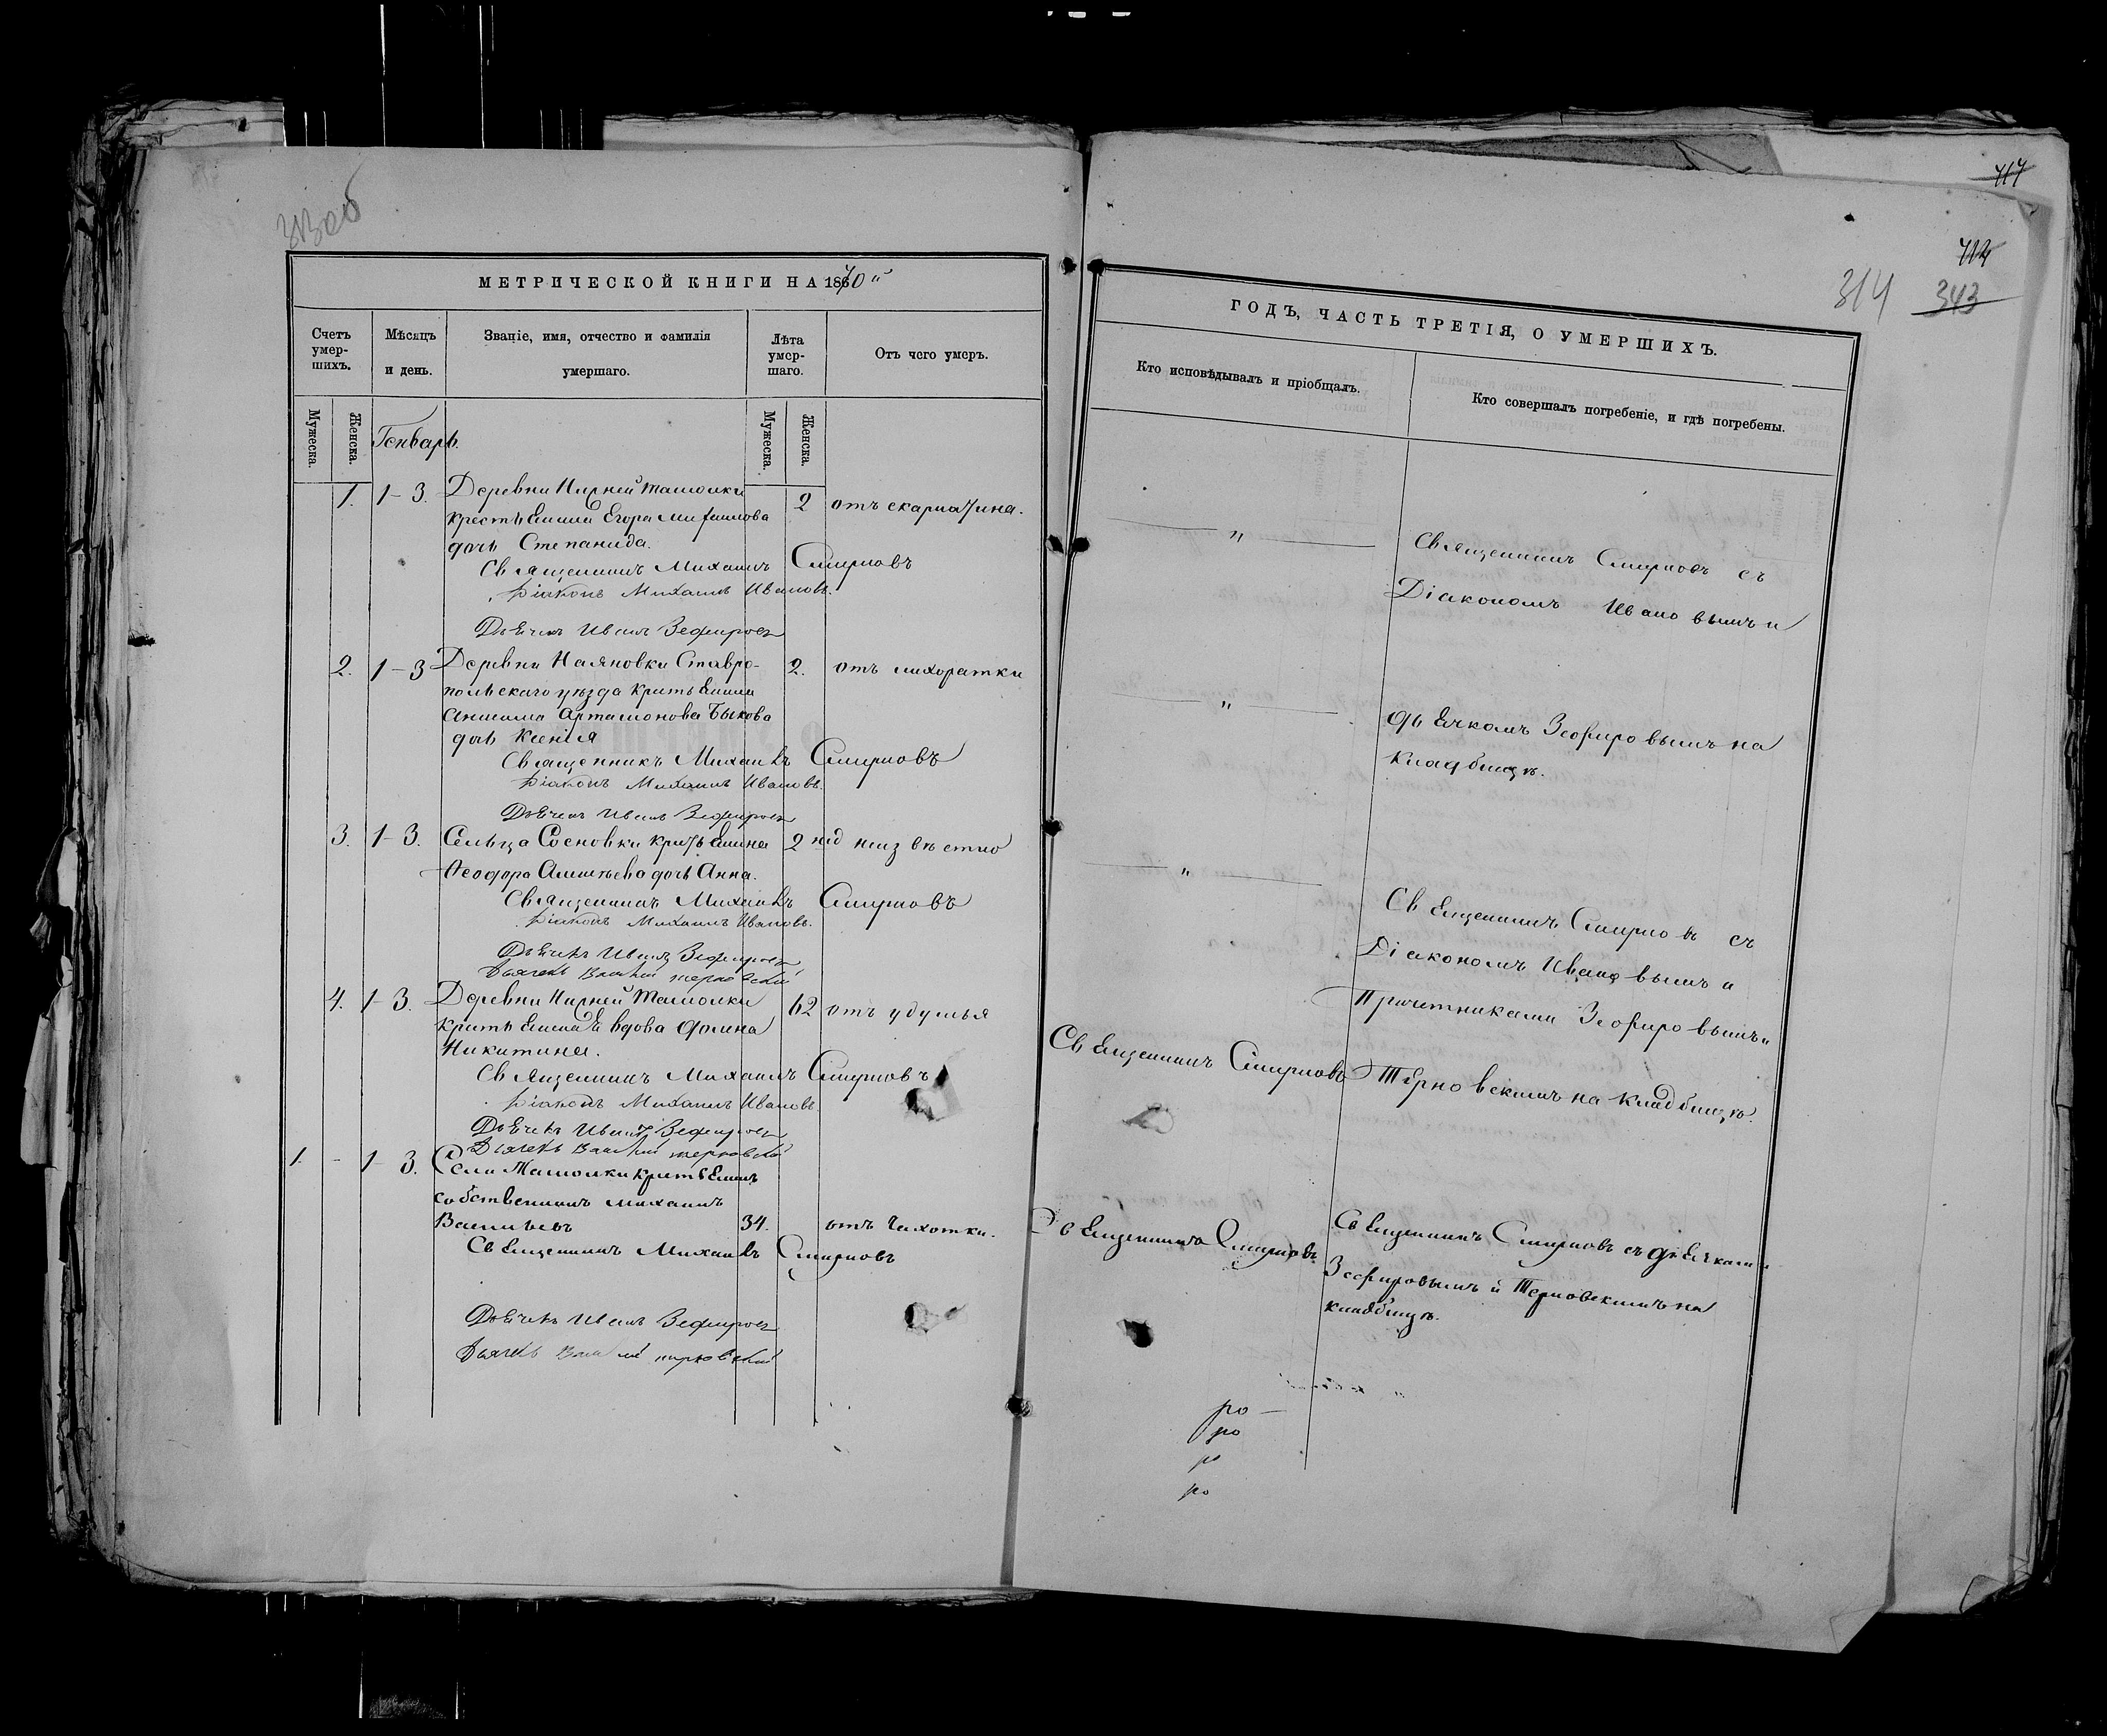 313об
МЕТРИЧЕСКОЙ КНИГИ НА 1870й
Счетъ умер-шихъ.
Мѣсяцъ и день.
Званіе, имя, отчество и фамилія умершаго.
Лѣта умер-шаго.
Отъ чего умеръ.
Мужеска.
Женска.
Генварь.
Мужеска.
Женска.
1. 1-3. Деревни Нижней Тамолки 2 отъ скарлатина.
крестьянина Егора Михаилова
дочь Степанида.
Священникъ Михаилъ Смирновъ
Діаконъ Михаилъ Ивановъ.
Дьячекъ Иванъ Зефировъ
2. 1-3 Деревни Ставро- 2. отъ лихоратки
польскаго уѣзда крестьянина
Анисима Артамонова Быкова
дочь Ксенія
Священникъ Михаилъ Смирновъ
Діаконъ Михаилъ Ивановъ.
Дьячекъ Иванъ Зефировъ
3. 1-3. Сельца Сосновки крестьянина 2 нед неизвѣстно
Ѳеодора дочь Анна.
Священникъ Михаилъ Смирновъ
Діаконъ Михаилъ Ивановъ.
Дьячекъ Иванъ Зефировъ
Дьячекъ Василий Терновский
4. 1-3. Деревни Нижней Тамолки 62 отъ удушья
вдова
Никитина.
Священникъ Михаилъ Смирновъ
Діаконъ Михаилъ Ивановъ.
Дьячекъ Иванъ Зефировъ
Дьячекъ Василий Терновский
1. - 1-3. Села Тамолки крестьянинъ
собственникъ Михаилъ
Васильевъ 34. отъ чихотки.
Священникъ Михаилъ Смирновъ
Дьячекъ Иванъ Зефировъ
Дьячекъ Василий Терновский
417
414
314 343
ГОДЪ, ЧАСТЬ ТРЕТІЯ, О УМЕРШИХЪ.
Кто исповѣдывалъ и пріобщалъ.
Кто совершалъ погребеніе, и гдѣ погребены.
— " —
Священникъ Смирновъ съ
Діакономъ Ивановымъ и
— " —
дьячкомъ Зефировымъ на
кладбищѣ.
— " —
Священникъ Смирновъ съ
Діакономъ Ивановымъ и
Причетниками Зефировымъ и
Священникъ Смирновъ
Терновскимъ на кладбищѣ.
Священникъ Смирновъ
Священникъ Смирновъ съ дьячками
Зефировымъ и Терновскимъ на
кладбищѣ.
ро —
ро
ро
ро